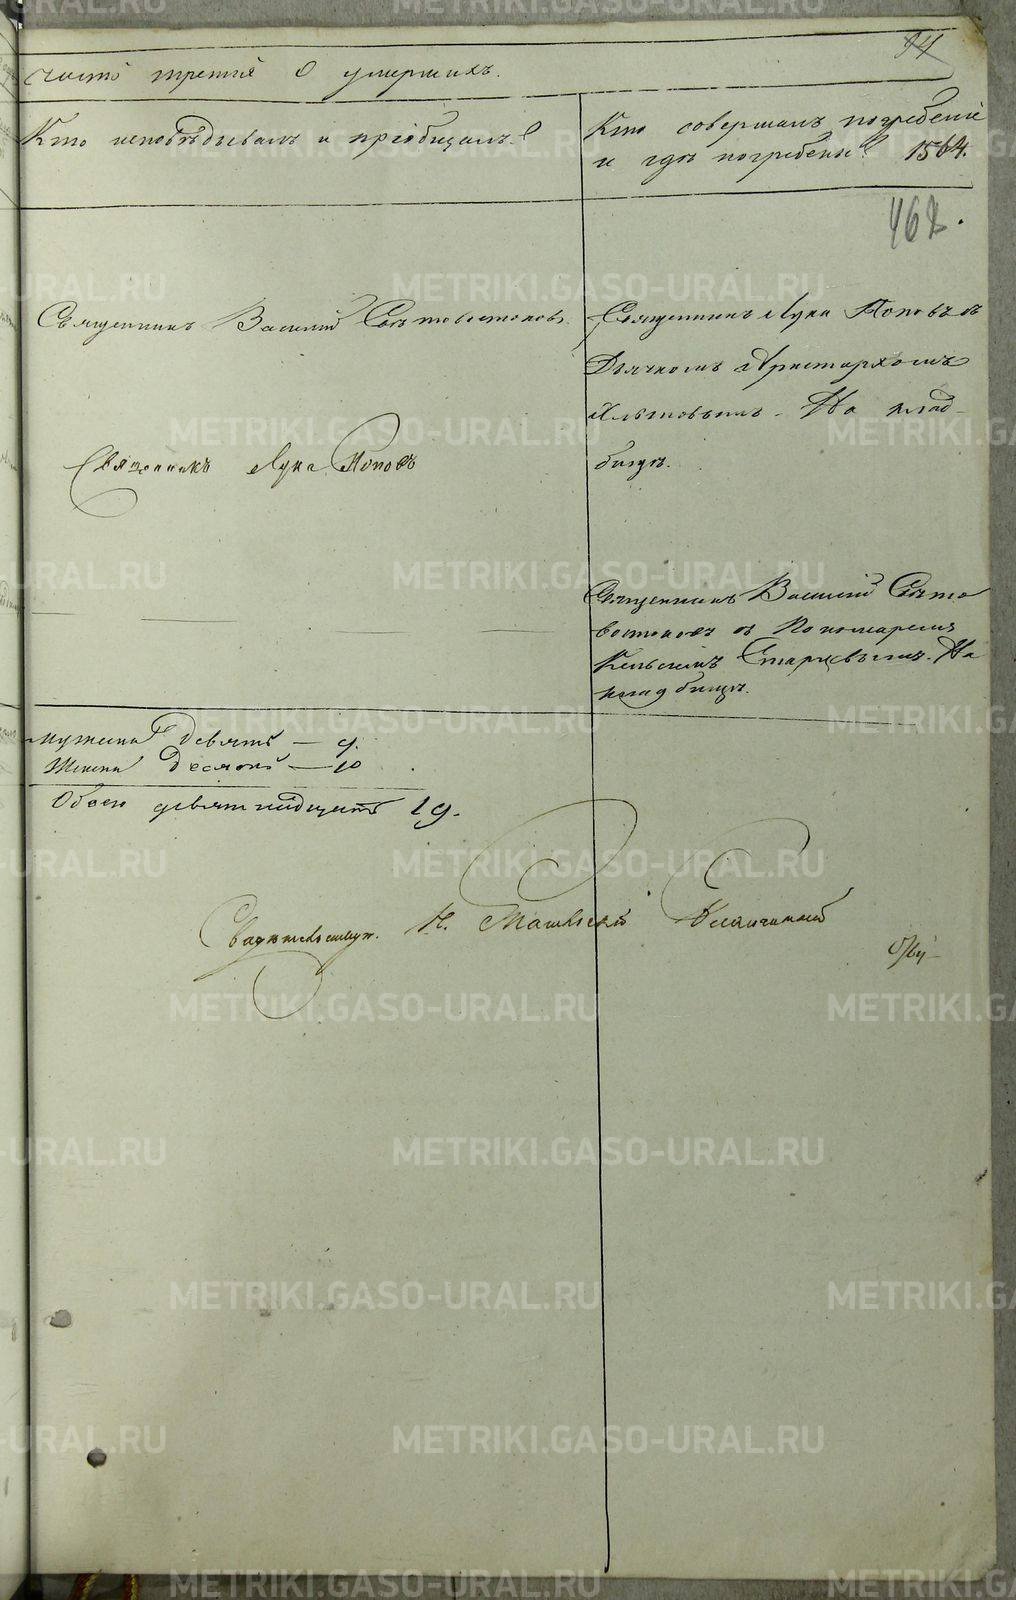 94
часть третья о умершихъ.
Кто исповѣдывалъ и пріобщалъ?
Кто совершалъ погребеніе
и гдѣ погребены? 1564.
468.
Священникъ Василій Свѣтовостоковъ.
Священникъ Лука Поповъ
Священникъ Лука Поповъ съ
Дьячкомъ Аристархомъ
На клад-
бищѣ.
Священникъ Василій Свѣто
востоковъ съ Пономаремъ
Старцевымъ. На
кладбищѣ.
мужеска девять — 9.
Женска Десять — 10
Обоего девятнадцать 19.
Свидѣтельству. Н.
METRIKI.GASO-URAL.RU